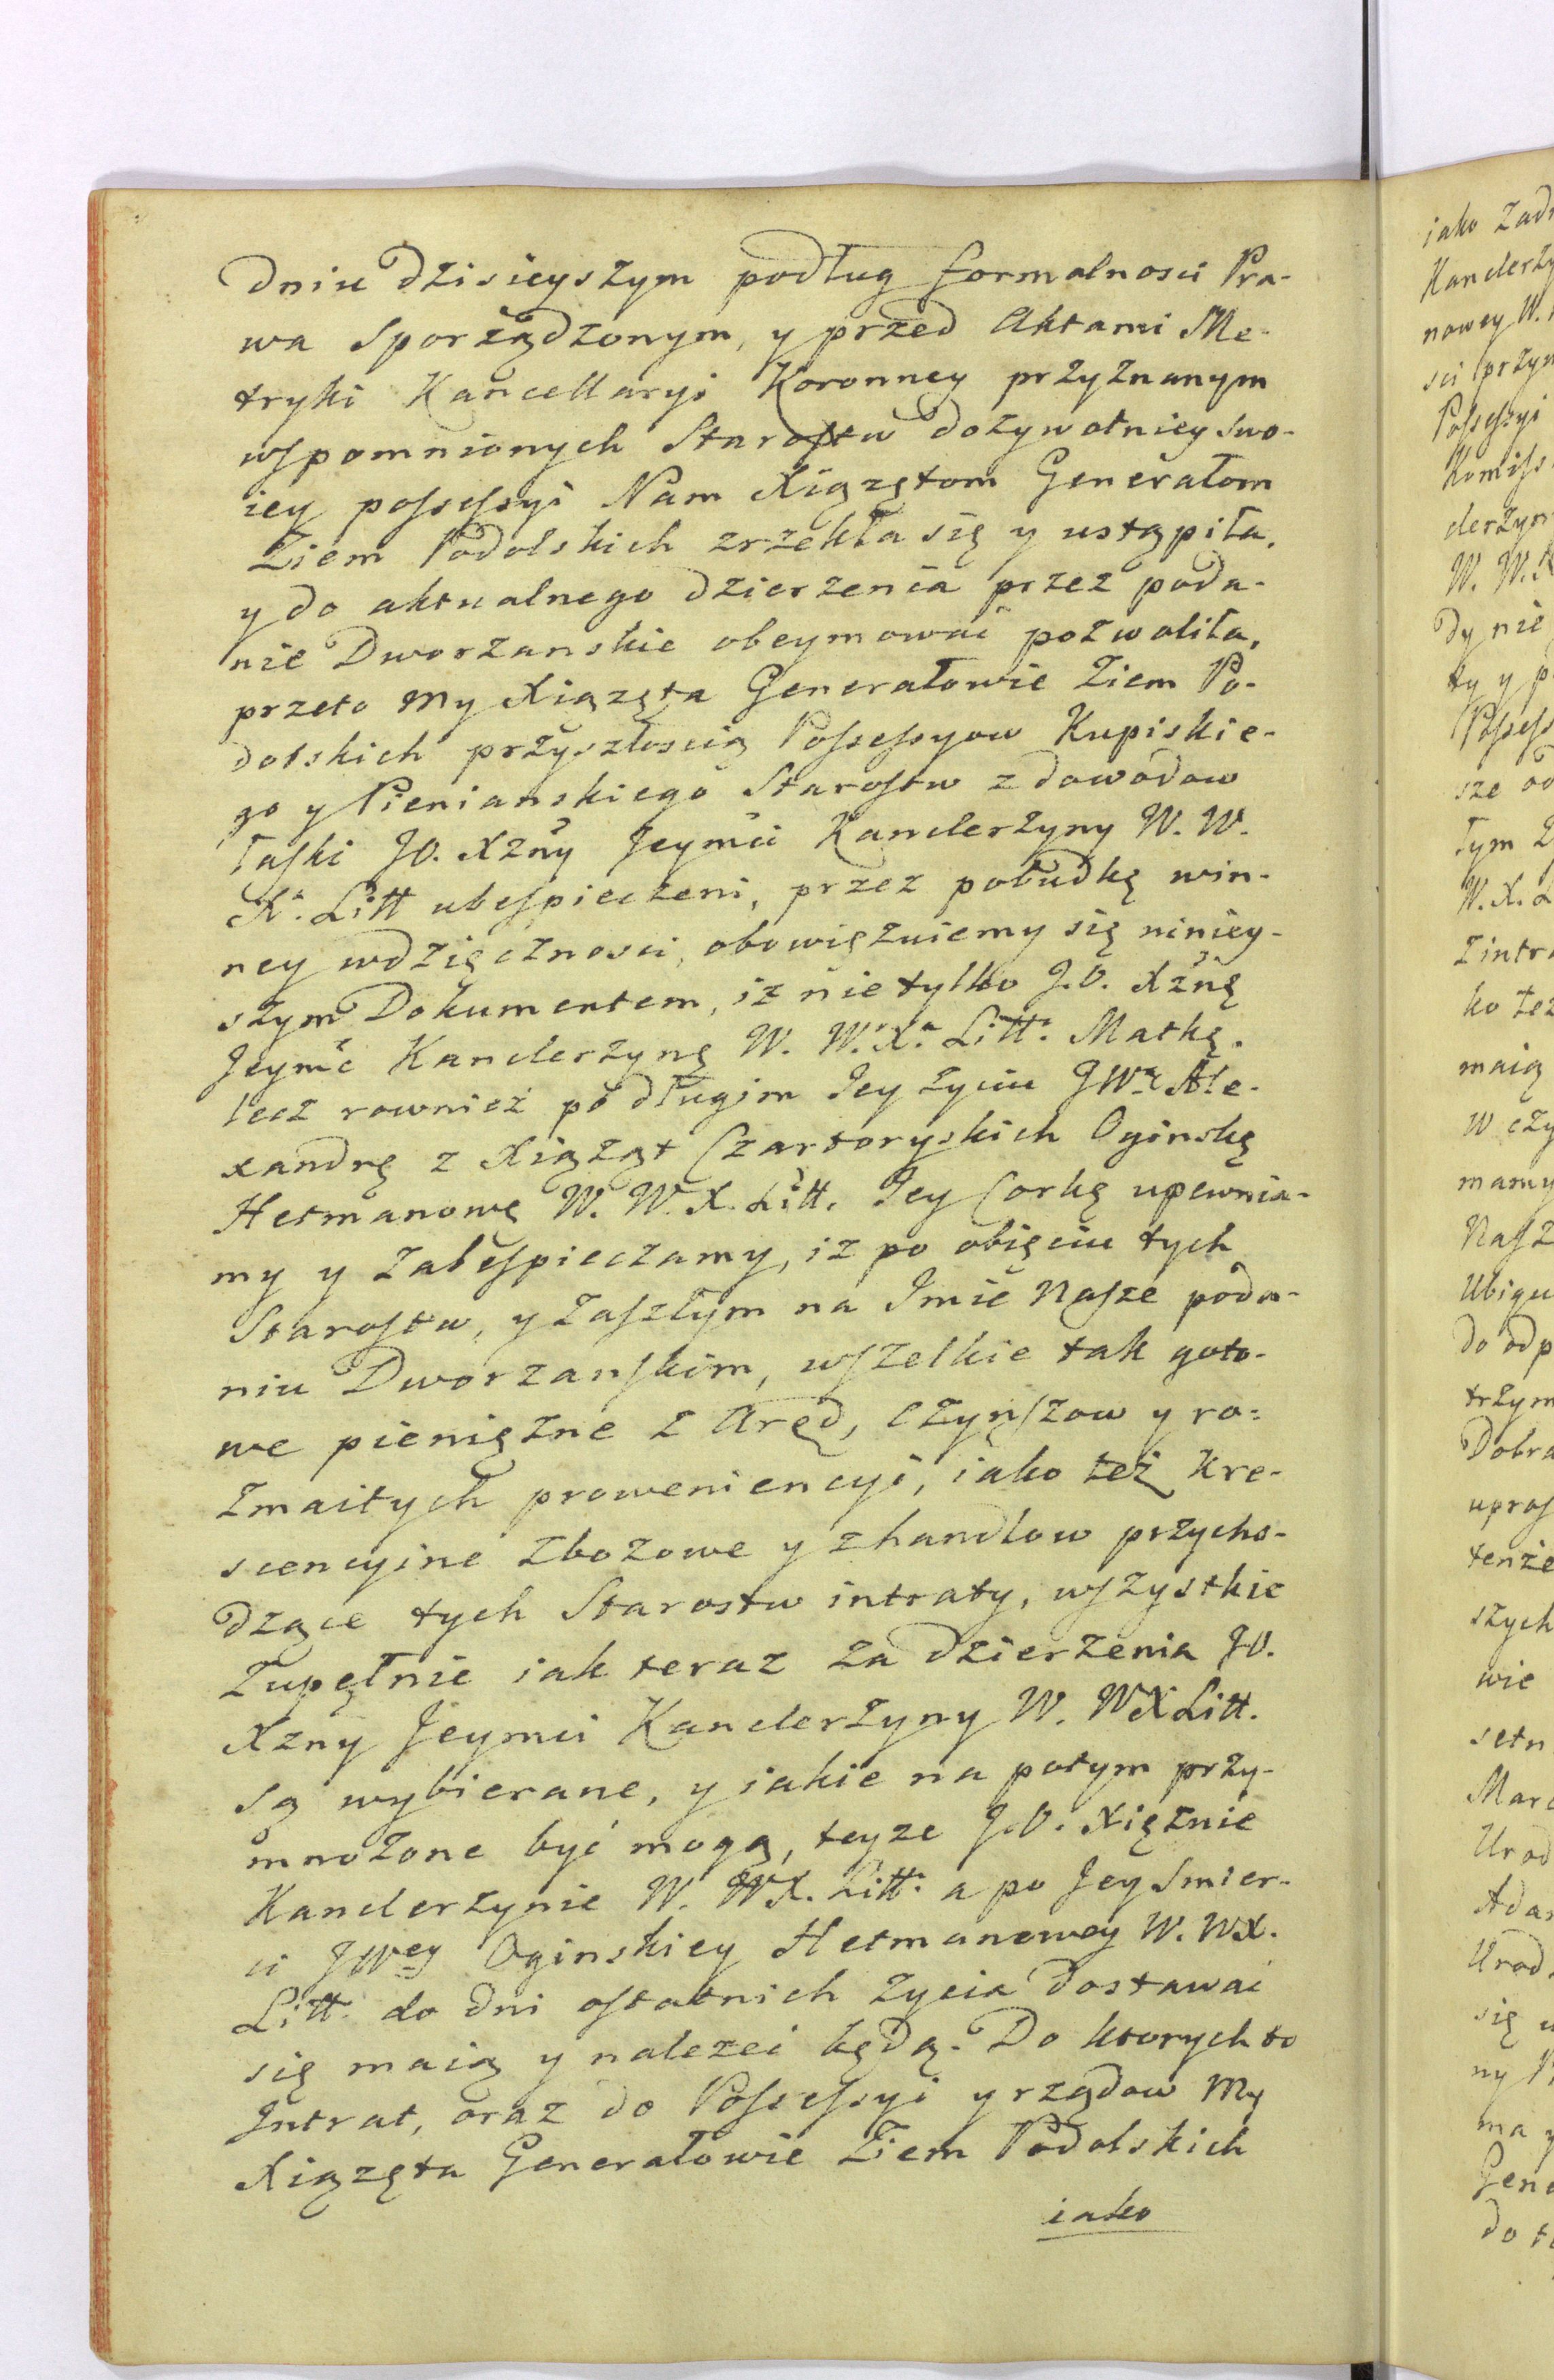 Dniu dzisieyszym podług formalnosci Pra-
wa sporządzonym, y przed Aktami Me-
tryki Kancellaryi Koronney przyznanym
wspomnionych Starostw dożywotniey swo-
iey possessyi Nam Xiązętom Generałom
Ziem Podolskich zrzekła się y ustąpiła,
y do aktualnego dzierzenia przez poda-
nie Dworzanskie obeymować pozwoliła,
przeto my Xiązęta Generałowie Ziem Po-
dolskich przyszłoscią Possessyow Kupiskie-
go y Pienianskiego Starostw z dowodow
łaski JO. Xzny Jeymci Kanclerzyny W. W.
X. Litt ubespieczeni, przez pobudkę win-
ney wdzięcznosci, obowięzuiemy się niniey-
szym Dokumentem, iz nie tylko J.O. Xżnę
Jeymć Kanclerzynę W. W. X. Litt. Matkę,
lecz rownież po długim Jey życiu JWą Ale-
xandrę z Xiążąt Czartoryskich Oginskę
Hetmanowę W. W. X. Litt. Jey Corkę upewnia-
my y zabespieczamy, iz po obięciu tych
Starostw, y zaszłym na Imie Nasze poda-
niu Dworzanskim, wszelkie tak goto-
we pieniężne z Aręd, Czynszow y ro-
zmaitych proweniencyi, iako też kre-
scencyine zbozowe y z handlow przycho-
dzące tych Starostw intraty, wszystkie
zupełnie iak teraz za dzierzenia JO.
Xzny Jeymci Kanclerzyny W. WX Litt.
są wybierane, y iakie na potym przy-
mnożone być mogą, teyze J.O. Xiężnie
Kanclerzynie W. WX. Litt. a po Jey Smier-
ci JWey Oginskiey Hetmanowey W. WX.
Litt. do dni ostatnich zycia dostawać
się maią y nalezeć będą. Do ktorych to
Intrat, oraz do Possessyi y rządow My
Xiązęta Generałowie Ziem Podolskich
iako